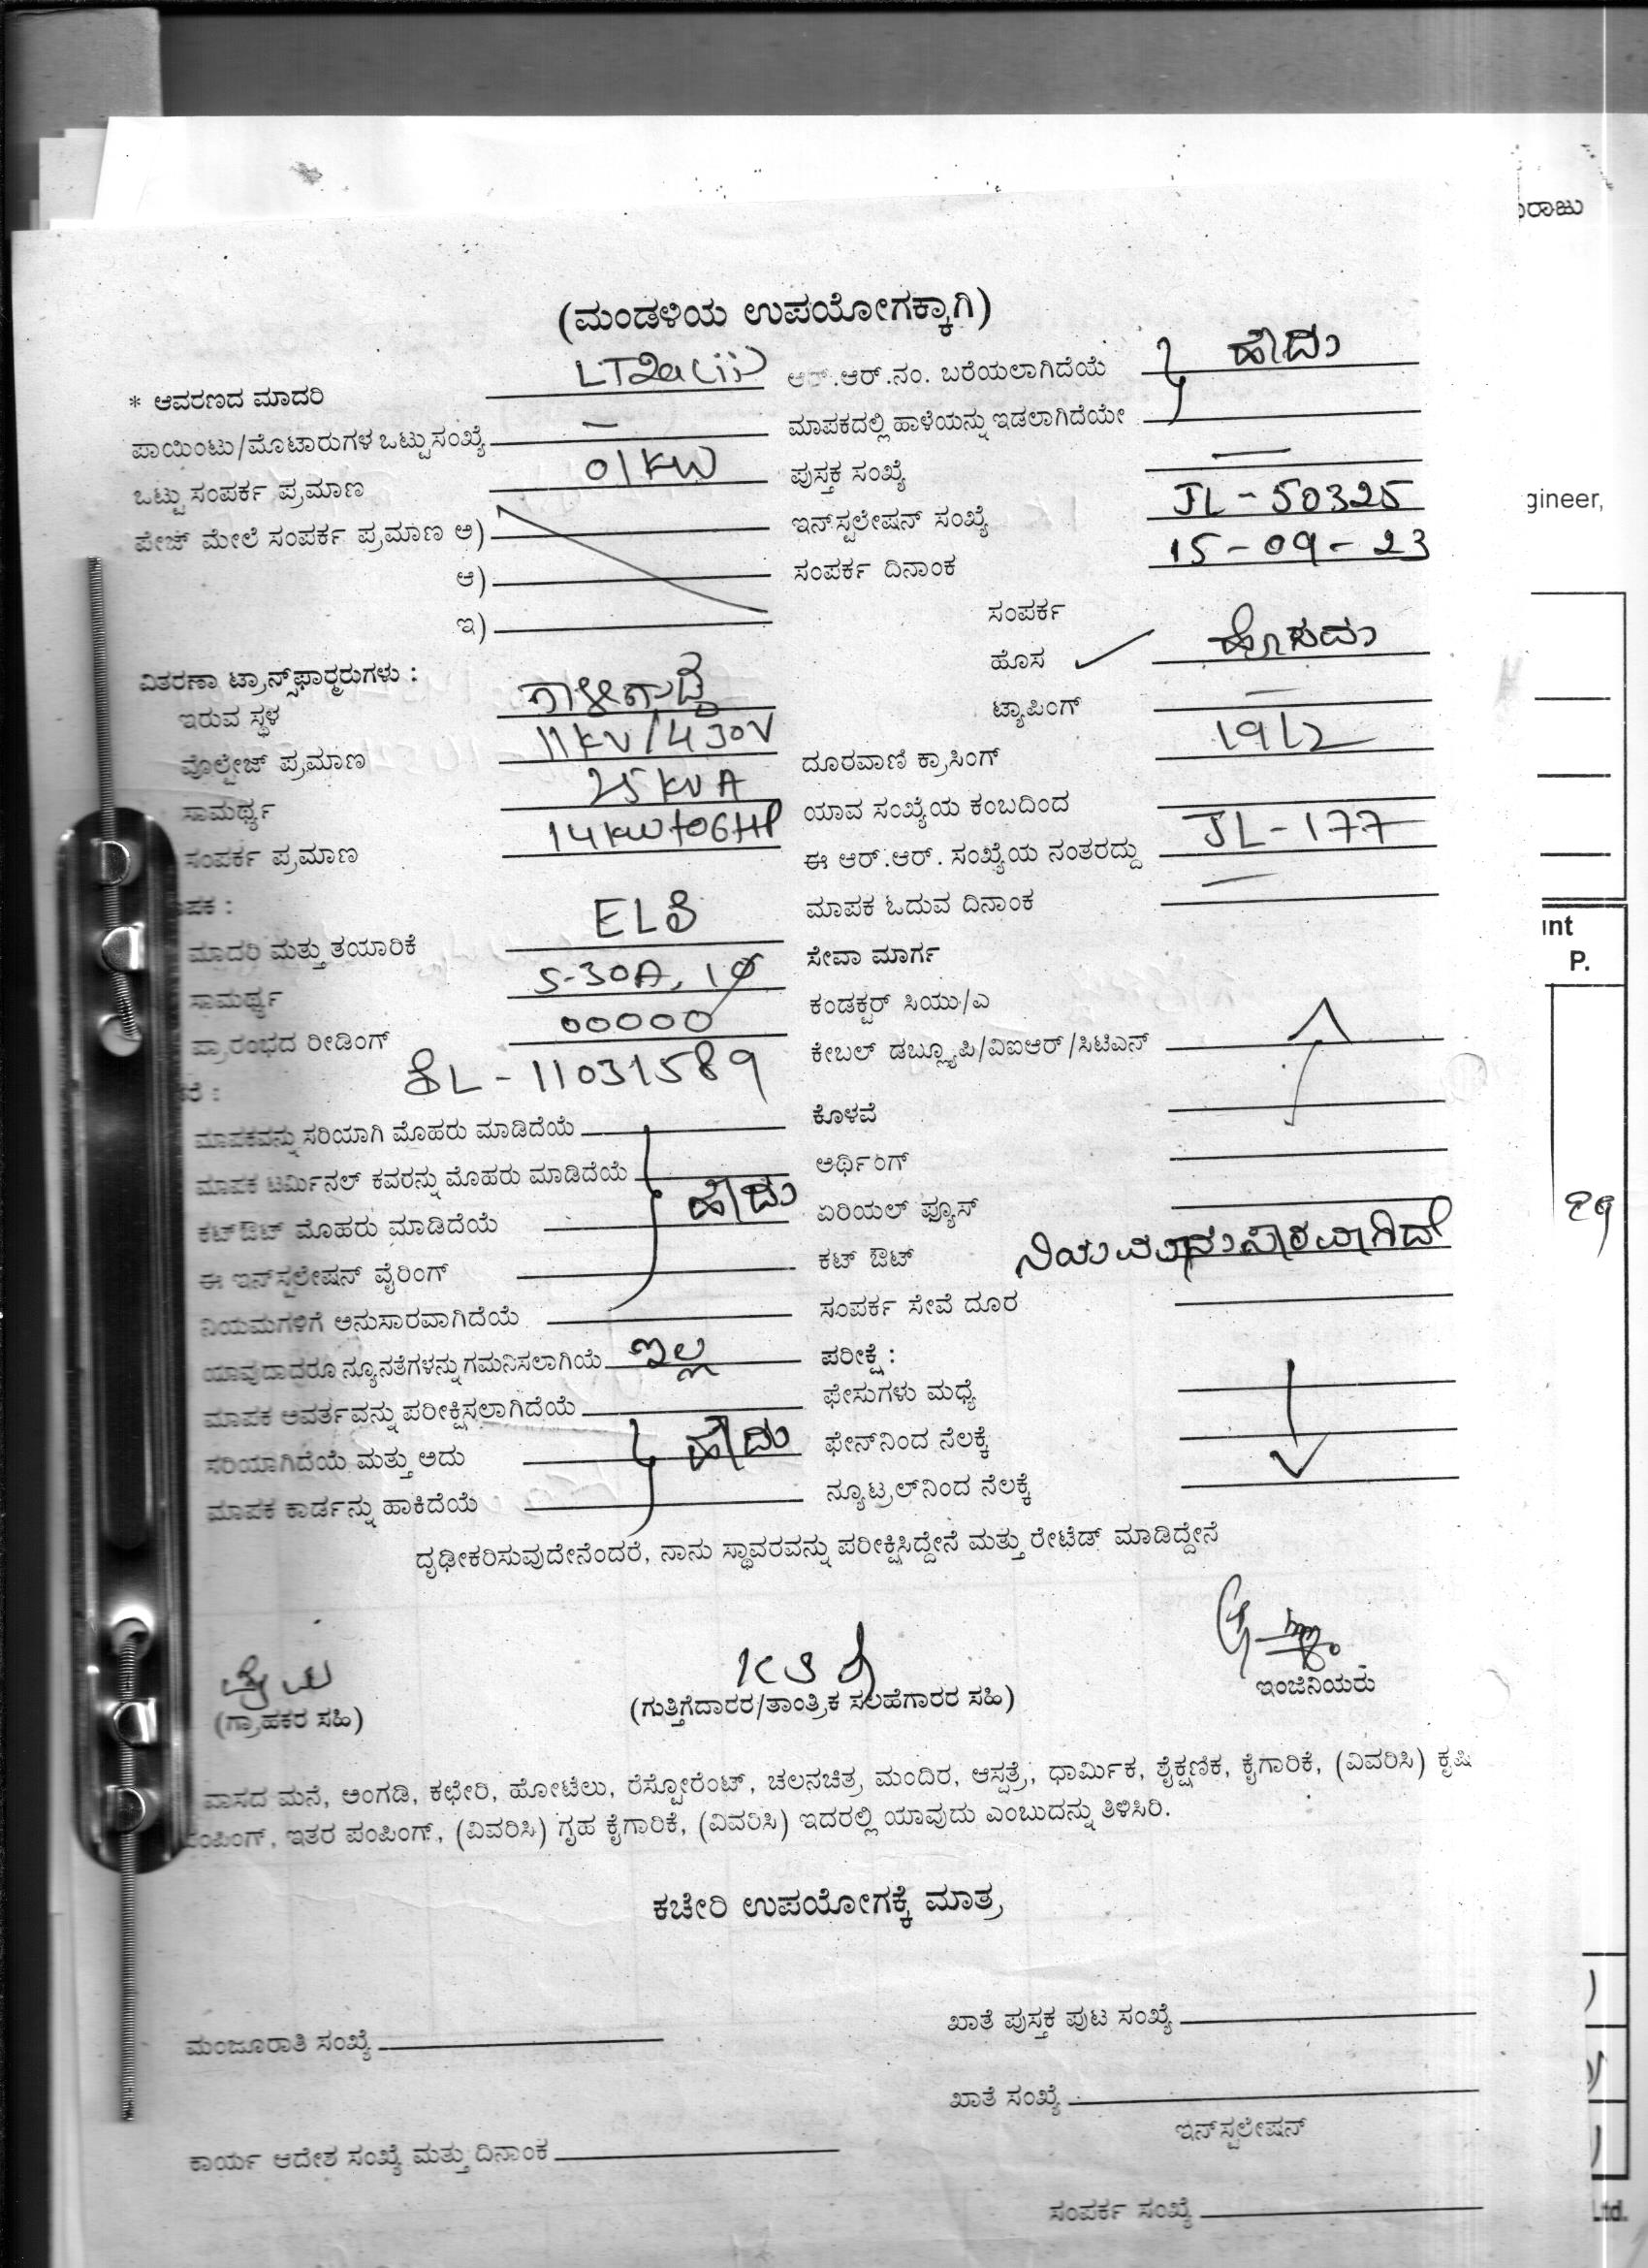 ುರಾಜು
(ಮಂಡಳಿಯ ಉಪಯೋಗಕ್ಕಾಗಿ)
* ಆವರಣದ ಮಾದರಿ LT2a(ii) ಆರ್.ಆರ್.ನಂ. ಬರೆಯಲಾಗಿದೆಯೆ ಹೌದು
ಪಾಯಿಂಟು/ಮೊಟಾರುಗಳ ಒಟ್ಟು ಸಂಖ್ಯೆ — ಮಾಪಕದಲ್ಲಿ ಹಾಳೆಯನ್ನು ಇಡಲಾಗಿದೆಯೇ
ಒಟ್ಟು ಸಂಪರ್ಕ ಪ್ರಮಾಣ 01KW ಪುಸ್ತಕ ಸಂಖ್ಯೆ —
gineer,
ಪೇಜ್ ಮೇಲೆ ಸಂಪರ್ಕ ಪ್ರಮಾಣ ಅ) ಇನ್‌ಸ್ಟಲೇಷನ್ ಸಂಖ್ಯೆ JL-50325
ಆ) ಸಂಪರ್ಕ ದಿನಾಂಕ 15-09-23
ಇ) ಸಂಪರ್ಕ
ಹೊಸ ✓ ಹೊಸದು
ವಿತರಣಾ ಟ್ರಾನ್ಸ್‌ಫಾರ್‍ಮರುಗಳು :
ಇರುವ ಸ್ಥಳ ಟ್ಯಾಪಿಂಗ್ —
ವೊಲ್ಟೇಜ್ ಪ್ರಮಾಣ 11KV/430V ದೂರವಾಣಿ ಕ್ರಾಸಿಂಗ್ 1912
ಸಾಮರ್ಥ್ಯ 25KVA ಯಾವ ಸಂಖ್ಯೆಯ ಕಂಬದಿಂದ
ಸಂಪರ್ಕ ಪ್ರಮಾಣ 14KW+06HP ಈ ಆರ್.ಆರ್. ಸಂಖ್ಯೆಯ ನಂತರದ್ದು JL-177
ಪಕ : ಮಾಪಕ ಓದುವ ದಿನಾಂಕ —
int
ಮಾದರಿ ಮತ್ತು ತಯಾರಿಕೆ ಸೇವಾ ಮಾರ್ಗ
P.
ಸಾಮರ್ಥ್ಯ 5-30A, 1Ø ಕಂಡಕ್ಟರ್ ಸಿಯು/ಎ
ಪ್ರಾರಂಭದ ರೀಡಿಂಗ್ 00000 ಕೇಬಲ್ ಡಬ್ಲ್ಯೂಪಿ/ವಿಐಆರ್/ಸಿಟಿಎನ್
ರೆ : 11031589
ಮಾಪಕವನ್ನು ಸರಿಯಾಗಿ ಮೊಹರು ಮಾಡಿದೆಯೆ ಕೊಳವೆ
ಮಾಪಕ ಟರ್ಮಿನಲ್ ಕವರನ್ನು ಮೊಹರು ಮಾಡಿದೆಯೆ ಹೌದು ಅರ್ಥಿಂಗ್
ಕಟ್‌ಔಟ್ ಮೊಹರು ಮಾಡಿದೆಯೆ ಏರಿಯಲ್ ಫ್ಯೂಸ್
ಈ ಇನ್‌ಸ್ಟಲೇಷನ್ ವೈರಿಂಗ್ ಕಟ್ ಔಟ್ ನಿಯಮಾನುಸಾರವಾಗಿದೆ
ನಿಯಮಗಳಿಗೆ ಅನುಸಾರವಾಗಿದೆಯೆ ಸಂಪರ್ಕ ಸೇವೆ ದೂರ
ಯಾವುದಾದರೂ ನ್ಯೂನತೆಗಳನ್ನು ಗಮನಿಸಲಾಗಿಯೆ ಇಲ್ಲ ಪರೀಕ್ಷೆ :
ಮಾಪಕ ಆವರ್ತವನ್ನು ಪರೀಕ್ಷಿಸಲಾಗಿದೆಯೆ ಫೇಸುಗಳು ಮಧ್ಯೆ
ಸರಿಯಾಗಿದೆಯೆ ಮತ್ತು ಅದು ಹೌದು ಫೇಸ್‌ನಿಂದ ನೆಲಕ್ಕೆ
ಮಾಪಕ ಕಾರ್ಡನ್ನು ಹಾಕಿದೆಯೆ ನ್ಯೂಟ್ರಲ್‌ನಿಂದ ನೆಲಕ್ಕೆ
ದೃಢೀಕರಿಸುವುದೇನೆಂದರೆ, ನಾನು ಸ್ಥಾವರವನ್ನು ಪರೀಕ್ಷಿಸಿದ್ದೇನೆ ಮತ್ತು ರೇಟೆಡ್ ಮಾಡಿದ್ದೇನೆ
(ಗ್ರಾಹಕರ ಸಹಿ) (ಗುತ್ತಿಗೆದಾರರ/ತಾಂತ್ರಿಕ ಸಲಹೆಗಾರರ ಸಹಿ) ಇಂಜಿನಿಯರು
ವಾಸದ ಮನೆ, ಅಂಗಡಿ, ಕಛೇರಿ, ಹೋಟೆಲು, ರೆಸ್ಟೋರೆಂಟ್, ಚಲನಚಿತ್ರ ಮಂದಿರ, ಆಸ್ಪತ್ರೆ, ಧಾರ್ಮಿಕ, ಶೈಕ್ಷಣಿಕ, ಕೈಗಾರಿಕೆ, (ವಿವರಿಸಿ) ಕೃಷಿ
ಪಂಪಿಂಗ್, ಇತರ ಪಂಪಿಂಗ್, (ವಿವರಿಸಿ) ಗೃಹ ಕೈಗಾರಿಕೆ, (ವಿವರಿಸಿ) ಇದರಲ್ಲಿ ಯಾವುದು ಎಂಬುದನ್ನು ತಿಳಿಸಿರಿ.
ಕಚೇರಿ ಉಪಯೋಗಕ್ಕೆ ಮಾತ್ರ
ಮಂಜೂರಾತಿ ಸಂಖ್ಯೆ ಖಾತೆ ಪುಸ್ತಕ ಪುಟ ಸಂಖ್ಯೆ
ಖಾತೆ ಸಂಖ್ಯೆ
ಇನ್‌ಸ್ಟಲೇಷನ್
ಕಾರ್ಯ ಆದೇಶ ಸಂಖ್ಯೆ ಮತ್ತು ದಿನಾಂಕ
ಸಂಪರ್ಕ ಸಂಖ್ಯೆ
Ltd.